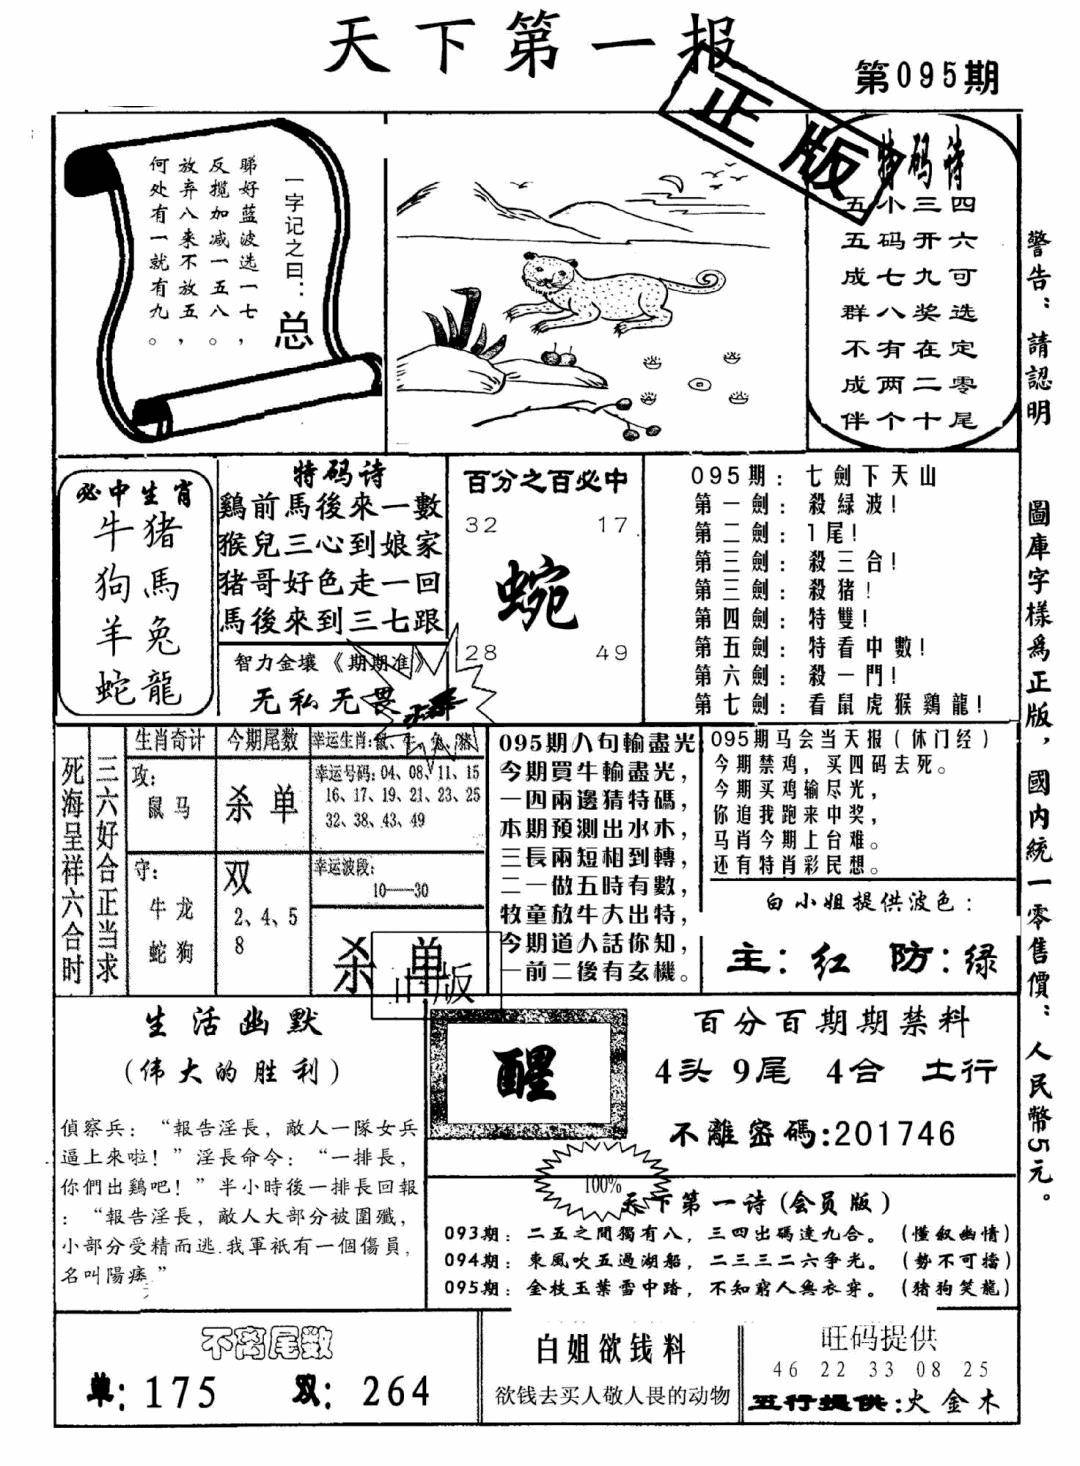 天下第一报
第095期
正版
一字记之曰：总
睇好蓝波选一七，
反揽加减一五八。
放弃八来不放五，
何处有一就有九。
特码诗
五小三四
五码开六
成七九可
群八奖选
不有在定
成两二零
伴个十尾
警告：請認明圖庫字樣爲正版，國内統一零售價：人民幣5元。
必中生肖
牛猪
狗馬
羊兔
蛇龍
特码诗
鷄前馬後來一數
猴兒三心到娘家
猪哥好色走一回
馬後來到三七跟
智力金壤《期期准》
无私无畏
百分之百必中
32 17
蜿
28 49
095期：七劍下天山
第一劍：殺緑波！
第二劍：1尾！
第三劍：殺三合！
第三劍：殺猪！
第四劍：特雙！
第五劍：特看中數！
第六劍：殺一門！
第七劍：看鼠虎猴鷄龍！
三六好合正当求
死海呈祥六合时
生肖奇计
攻：
鼠马
守：
牛龙
蛇狗
今期尾数
杀单
双
2、4、5
8
幸运生肖：鼠、牛、兔、猪
幸运号码：04、08、11、15
16、17、19、21、23、25
32、38、43、49
幸运波段：
10——30
杀单
正版
095期八句輸盡光
今期買牛輸盡光，
一四兩邊猜特碼，
本期預測出水木，
三長兩短相到轉，
二一做五時有數，
牧童放牛大出特，
今期道人話你知，
一前二後有玄機。
095期马会当天报（休门经）
今期禁鸡，买四码去死。
今期买鸡输尽光，
你追我跑来中奖，
马肖今期上台难。
还有特肖彩民想。
白小姐提供波色：
主：红 防：绿
生活幽默
（伟大的胜利）
偵察兵：“報告淫長，敵人一隊女兵
逼上來啦！”淫長命令：“一排長，
你們出鷄吧！”半小時後一排長回報
：“報告淫長，敵人大部分被圍殲，
小部分受精而逃.我軍祇有一個傷員，
名叫陽痿.”
醒
百分百期期禁料
4头 9尾 4合 土行
不離密碼:201746
100%
天下第一诗（会员版）
093期：二五之間獨有八，三四出碼達九合。（懂叙幽情）
094期：東風吹五過湖船，二三三二六争光。（势不可擋）
095期：金枝玉葉雪中踏，不知窮人無衣穿。（豬狗笑龍）
不离尾数
单: 175 双: 264
白姐欲钱料
欲钱去买人敬人畏的动物
旺码提供
46 22 33 08 25
五行提供:火金木